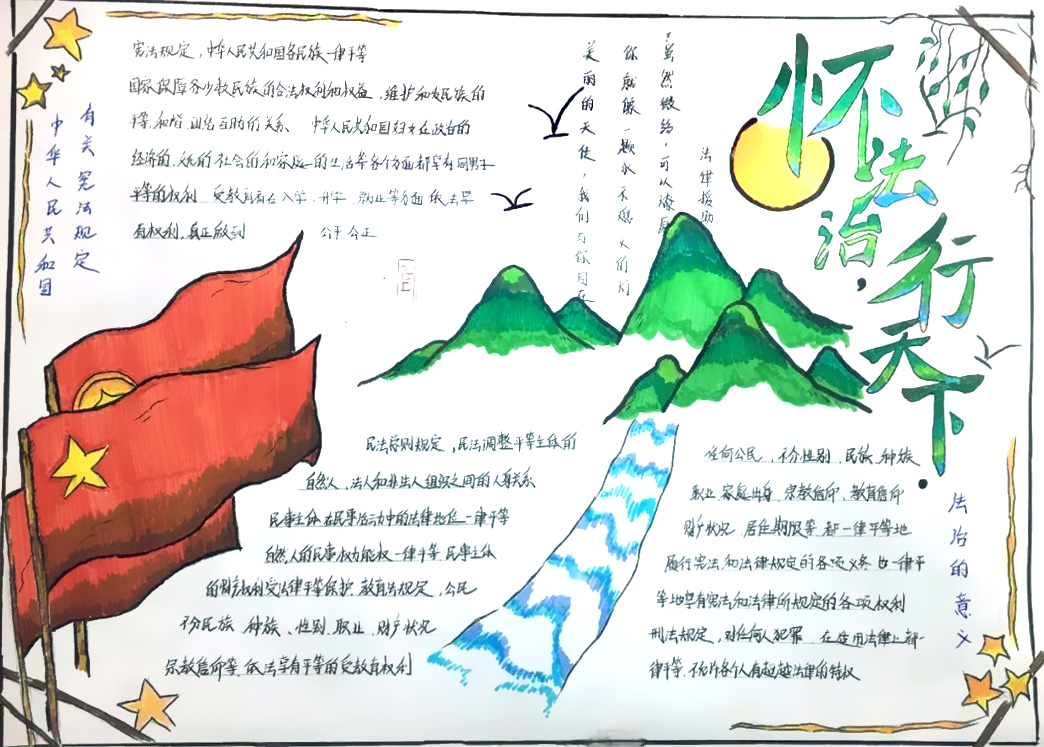 怀法治，行天下.
有关宪法规定
中华人民共和国
宪法规定，中华人民共和国各民族一律平等
国家保障各少数民族的合法权利和权益，维护和发民族的
平等，和谐，团结互助的关系、中华人民共和国妇女在政治的
经济的，文化的社会的和家庭的生活等各个方面都享有同男子
平等的权利 受教育者在入学 升学 就业等方面依法享
有权利，真正做到 公平公正
法律援助
虽然微弱，可以燎原
你就像一颗永不熄火的灯
美丽的天使，我们与你同在
民法总则规定，民法调整平等主体的
自然人、法人和非法人组织之间的人身关系
民事主体在民事活动中的法律地位一律平等
自然人的民事权力能权一律平等 民事主体
的财产权利受法律平等保护，教育法规定，公民
不分民族 种族、性别 职业、财产状况
宗教信仰等，依法享有平等的受教育权利
法治的意义
任何公民，不分性别、民族、种族
职业 家庭出身 宗教信仰、教育信仰
财产状况 居住期限等 都一律平等地
履行宪法和法律规定的各项义务也一律平
等地享有宪法和法律所规定的各项权利
刑法规定，对任何人犯罪 在适用法律上都一
律平等，不允许各个人有超越法律的特权